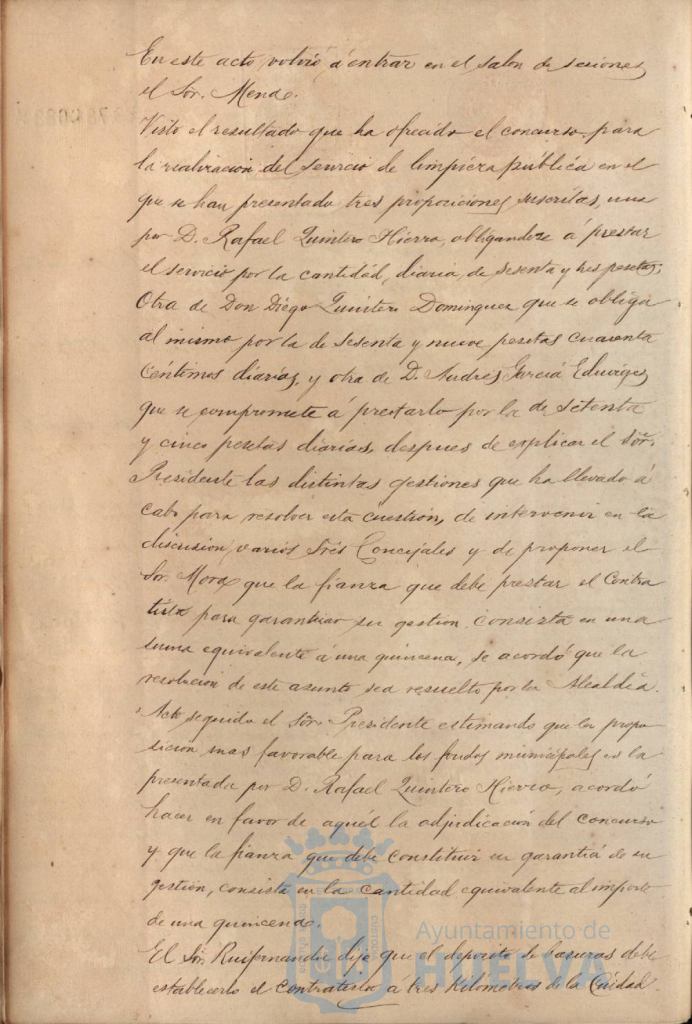 En este acto, volvió, á entrar en el salon de sesiones,
el Sór. Mendo.
Visto el resultado que ha ofrecido el concurso, para
la realizacion del servicio de limpieza pública en el
que se han presentado tres proposiciones, suscritas, una
por D. Rafael Quintero Hierro, obligandose á prestar
el servicio por la cantidad, diaria, de sesenta y tres pesetas;
Otra de Don Diego Quintero Dominguez que se obliga
al mismo por la de sesenta y nueve pesetas cuarenta
céntimos diarios, y otra de D. Andrés Garcia Eduviges,
que se compromete á prestarlo por la de setenta
y cinco pesetas diarias, despues de explicar el Sór.
Presidente las distintas gestiones que ha llevado á
cabo para resolver esta cuestión, de intervenir en la
discusion, varios Sres Concejales y de proponer el
Sor. Mora que la fianza que debe prestar el Contra
tista para garantizar su gestion consista en una
suma equivalente á una quincena, se acordó que la
resolucion de este asunto sea resuelto por la Alcaldía.
Acto seguido el Sór. Presidente estimando que la propo
sicion mas favorable para los fondos municipales es la
presentada por D. Rafael Quintero Hierro, acordó
hacer en favor de aquél la adjudicación del concurso
y que la fianza que debe constituir en garantía de su
gestión, consista en la cantidad equivalente al importe
de una quincena.
El Sór. Ruifernandez dijo que el deposito de basuras debe
establecerlo el contratista a tres kilómetros de la Ciudad
Ayuntamiento de
HUELVA